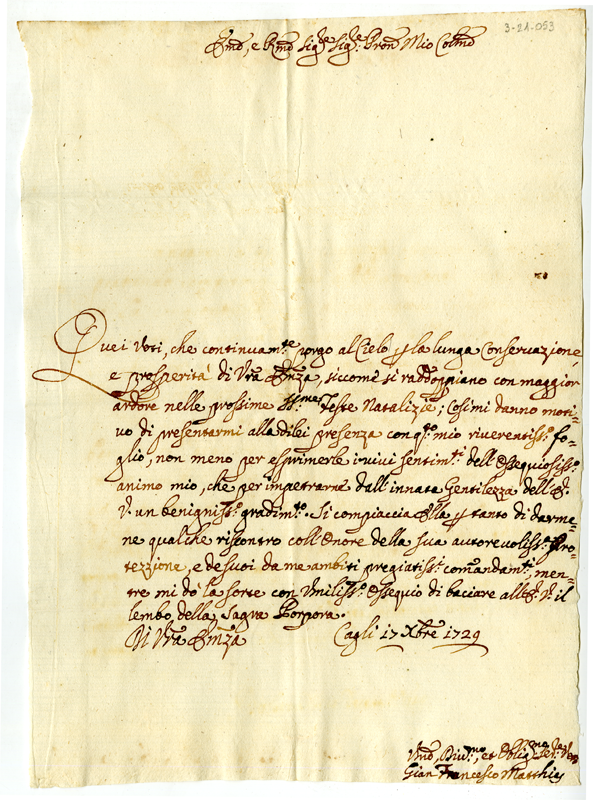 3-21.053
Emõ, e Rmõ Sig.re Sig.re Pron Mio Colmõ
Quei Voti, che continuam.te porgo al Cielo p la lunga Conservazione,
e prosperità di Vrã Emzã, siccome si raddoppiano con maggior
ardore nelle prossime SS.me Feste Natalizie; Così mi danno moti=
vo di presentarmi alla di lei presenza con q.to mio riverentiss.o fo=
glio, non meno per esprimerle i vivi sentim.ti dell'Ossequiosiss.o
animo mio, che per impetrarne dall'innata Gentilezza dell'E.
V. un benigniss.o gradim.to. Si compiaccia Ella p tanto di darme=
ne qualche riscontro coll'Onore della sua autorevoliss.a Pro=
tezzione, e de suoi da me ambiti pregiatiss.i comandam.ti men=
tre mi dò la sorte con Umiliss.o Ossequio di baciare all'E. V. il
lembo della Sagra Porpora.
Di Vrã Emzã Cagli 17 Xbre 1729
Umõ, Div.mo, et Oblig.mo
Gian Francesco Matthis